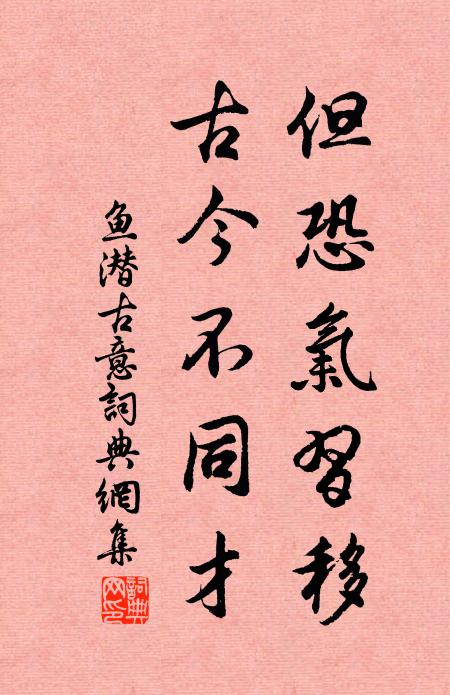 但恐氣習移
古今不同才
鱼潜古意詞典網集
詞典网印